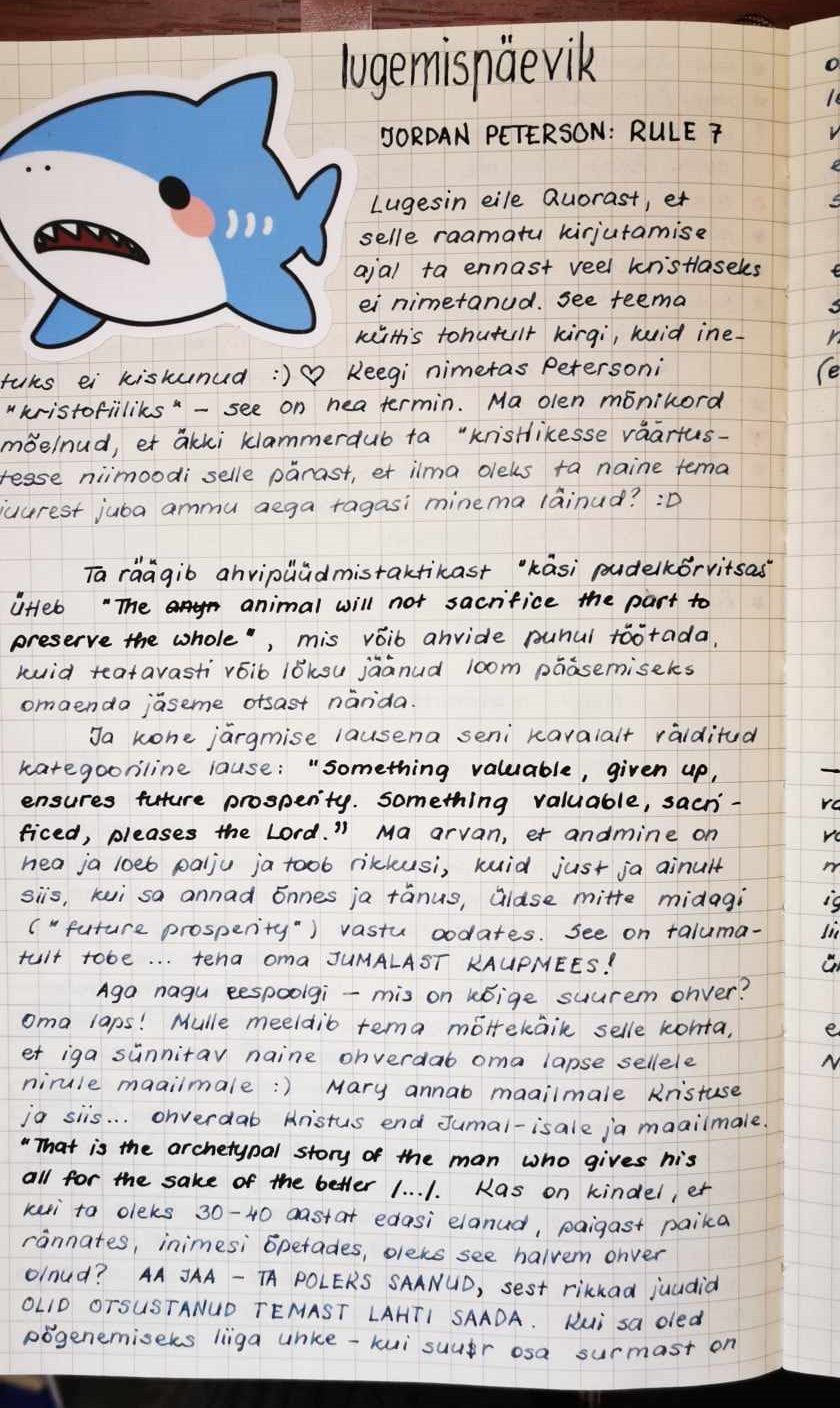 lugemispäevik
JORDAN PETERSON: RULE 7
Lugesin eile Quorast, et
selle raamatu kirjutamise
ajal ta ennast veel kristlaseks
ei nimetanud. See teema
küttis tohutult kirgi, kuid ine-
tuks ei kiskunud :) ♡ Keegi nimetas Petersoni
"kristofiiliks" – see on hea termin. Ma olen mõnikord
mõelnud, et äkki klammerdub ta "kristlikesse väärtus-
tesse niimoodi selle pärast, et ilma oleks ta naine tema
juurest juba ammu aega tagasi minema läinud? :D
Ta räägib ahvipüüdmistaktikast "käsi pudelkõrvitsas"
ütleb "The anyn animal will not sacrifice the part to
preserve the whole", mis võib ahvide puhul töötada,
kuid teatavasti võib lõksu jäänud loom pääsemiseks
omaenda jäseme otsast närida.
Ja kohe järgmise lausena seni kavalalt välditud
kategooriline lause: "Something valuable, given up,
ensures future prosperity. Something valuable, sacri-
ficed, pleases the Lord." Ma arvan, et andmine on
hea ja loeb palju ja toob rikkusi, kuid just ja ainult
siis, kui sa annad õnnes ja tänus, üldse mitte midagi
("future prosperity") vastu oodates. See on taluma-
tult tobe ... teha oma JUMALAST KAUPMEES!
Aga nagu eespoolgi – mis on kõige suurem ohver?
Oma laps! Mulle meeldib tema mõttekäik selle kohta,
et iga sünnitav naine ohverdab oma lapse sellele
nirule maailmale :) Mary annab maailmale Kristuse
ja siis... ohverdab Kristus end Jumal-isale ja maailmale.
"That is the archetypal story of the man who gives his
all for the sake of the better /.../. Kas on kindel, et
kui ta oleks 30-40 aastat edasi elanud, paigast paika
rännates, inimesi õpetades, oleks see halvem ohver
olnud? AA JAA – TA POLEKS SAANUD, sest rikkad juudid
OLID OTSUSTANUD TEMAST LAHTI SAADA. Kui sa oled
põgenemiseks liiga uhke – kui suur osa surmast on